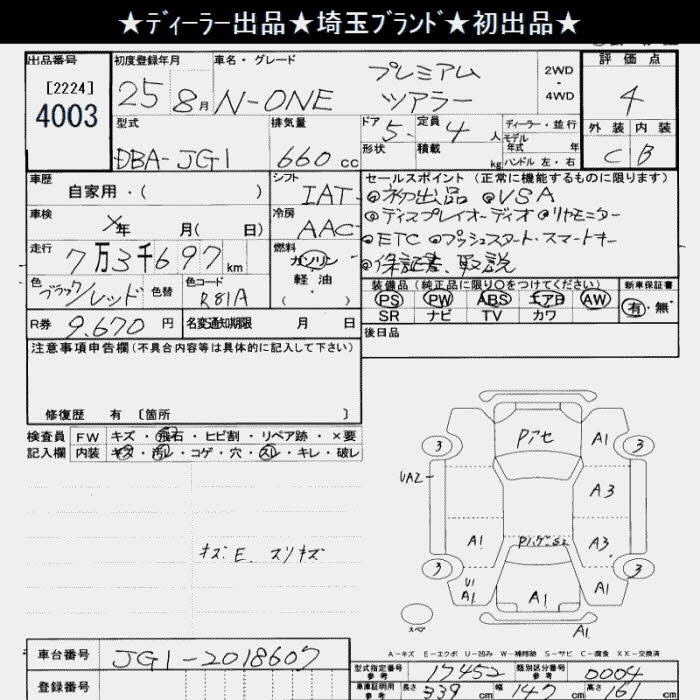 ★ディーラー出品★埼玉ブランド★初出品★
出品番号 初度登録年月 車名・グレード 評価点
[2224] 4003 25 8月 N-ONE プレミアム ツアラー 2WD・4WD 4
型式 排気量 ドア 5 定員 4人 ディーラー・並行 外装 内装
形状 積載 kg モデル年式 年 ハンドル 左・右
DBA-JG1 660cc C B
車歴 シフト セールスポイント (正常に機能するものに限ります)
自家用・( ) IAT ◎初出品 ◎VSA
車検 年 月( 日) 冷房 AAC ◎ディスプレイオーディオ ◎リヤモニター
走行 7万3千697km 燃料 ガソリン 軽油 ・( ) ◎ETC ◎プッシュスタート・スマートキー
◎保証書、取説
色 ブラック/レッド 色替 色コード R81A
装備品 (純正品に限り○をつけてください) 新車保証書
PS PW ABS エアB AW 有・無
SR ナビ TV カワ
R券 9,670円 名変通知期限 月 日
後日品
注意事項申告欄(不具合内容等は具体的に記入して下さい)
修復歴 有 〔箇所 〕
検査員 FW キズ・飛石・ヒビ割・リペア跡・×要
記入欄 内装 キズ・汚レ・コゲ・穴・スレ・キレ・破レ
キズE. スリキズ
Pアセ
A1
3 3
UA2
A3
A1 A3
3 3
U1 A1 A1 A1
スペア
A1
A-キズ E-エクボ U-凹み W-補修跡 S-サビ C-腐食 XX-交換済
車台番号 JG1-2018607
型式指定番号 参考 17452 類別区分番号 参考 0004
登録番号
車庫証明用 参考 長さ 339cm 幅 147cm 高さ 161cm